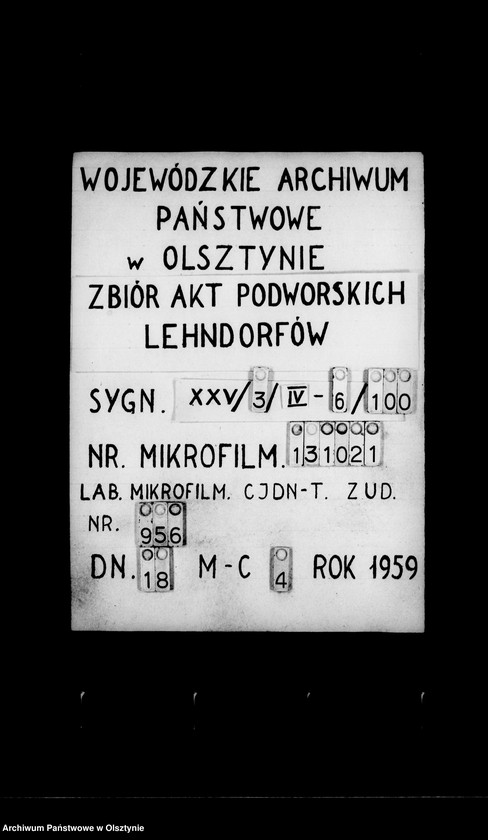 WOJEWÓDZKIE ARCHIWUM
PAŃSTWOWE
w OLSZTYNIE
ZBIÓR AKT PODWORSKICH
LEHNDORFÓW
SYGN. XXV/3/IV-6/100
NR. MIKROFILM. 131021
LAB. MIKROFILM. CJDN-T. ZUD.
NR. 956
DN. 18 M-C 4 ROK 1959
Archiwum Państwowe w Olsztynie